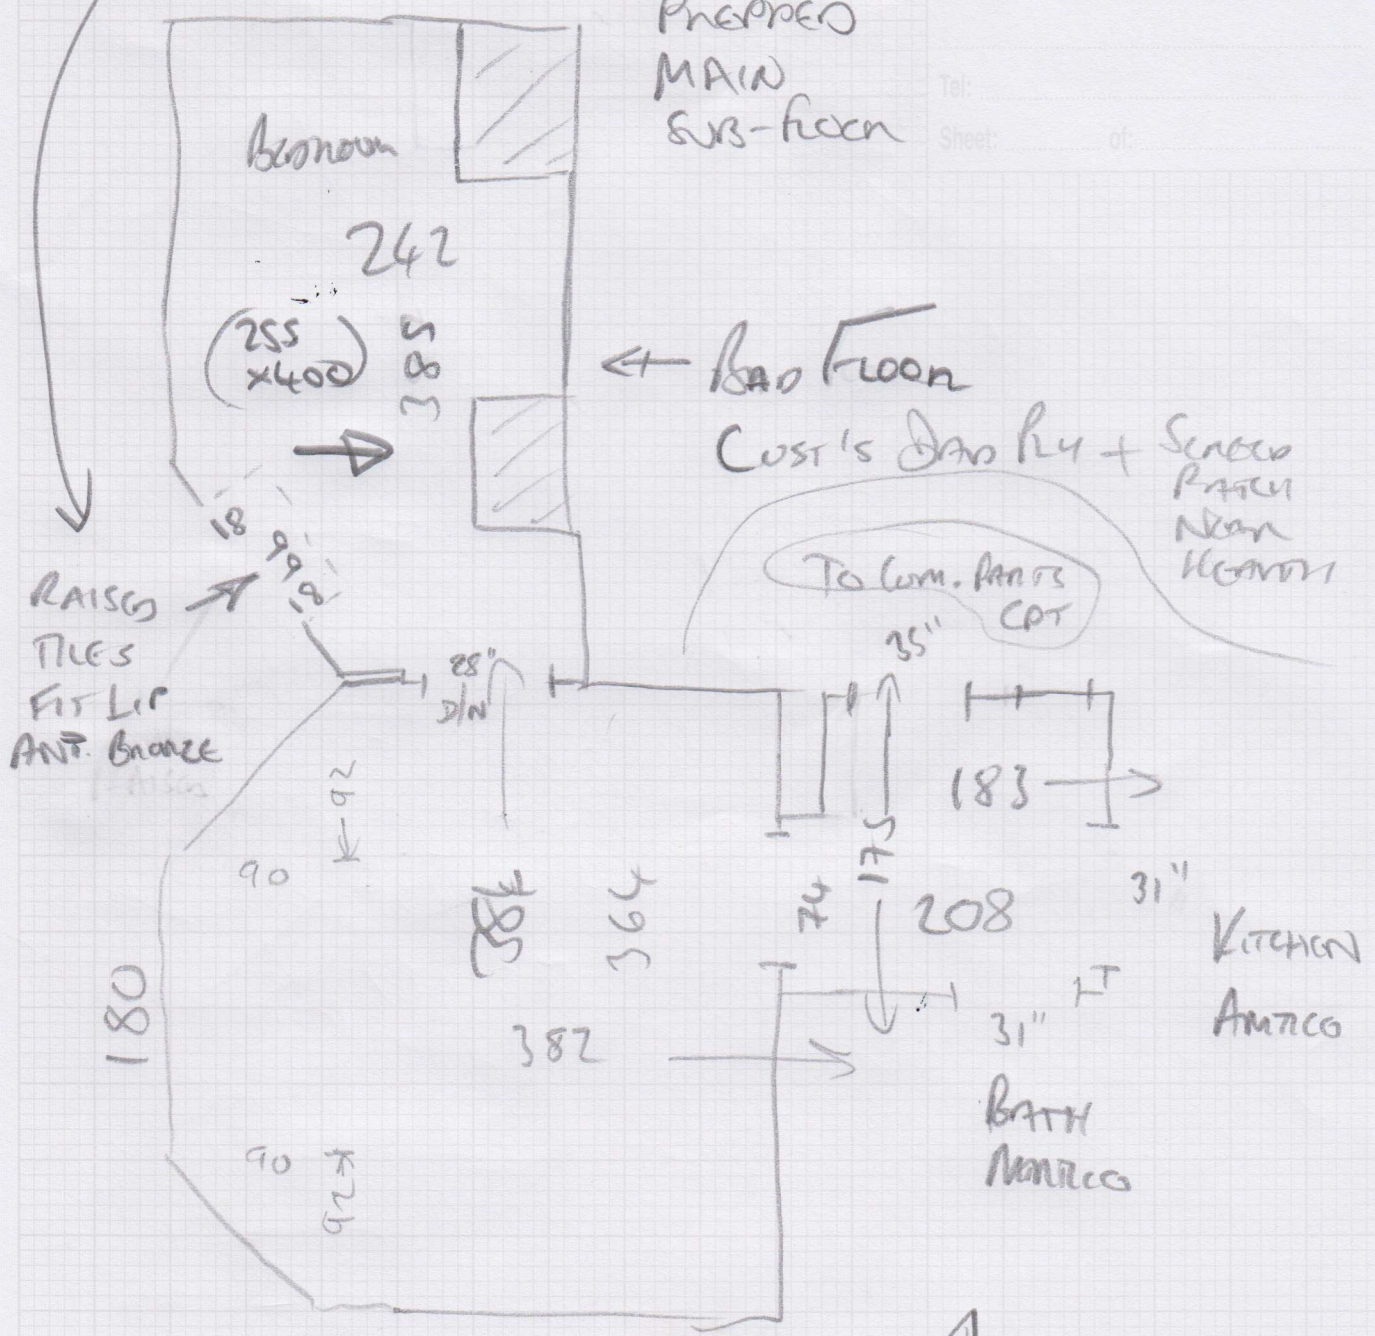 PREPPED
MAIN
SUB-FLOOR
Tel:
Sheet: of:
BEDROOM
242
(255
x400)
385
← BAD FLOOR
CUST'S DAD PLY + SCREED
PATCH
NEAR
HEARTH
18
99
18
TO COM. PARTS
CPT
RAISED
TILES
FIT LIP
ANT. BRONZE
28"
D/N
35"
183
92
90
364
74
175
208
31"
KITCHEN
AMTICO
180
382
31"
BATH
AMTICO
90
92